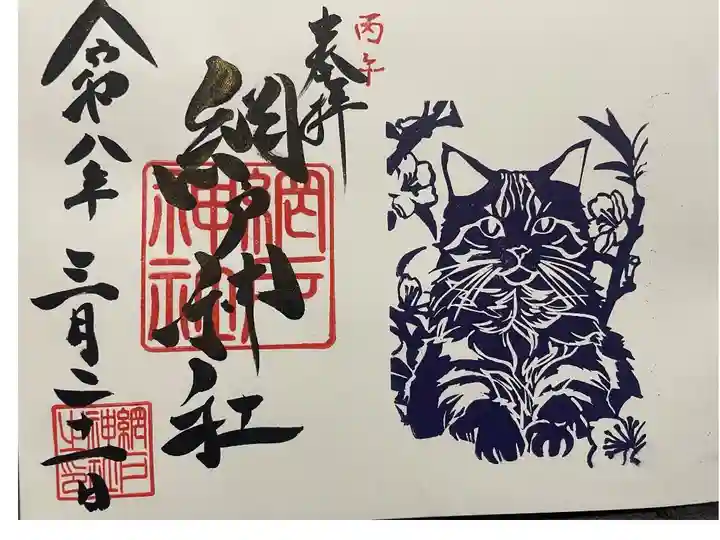 丙午
奉拝
網戸神社
網戸神社
令和八年 三月二十一日
網戸神社之印